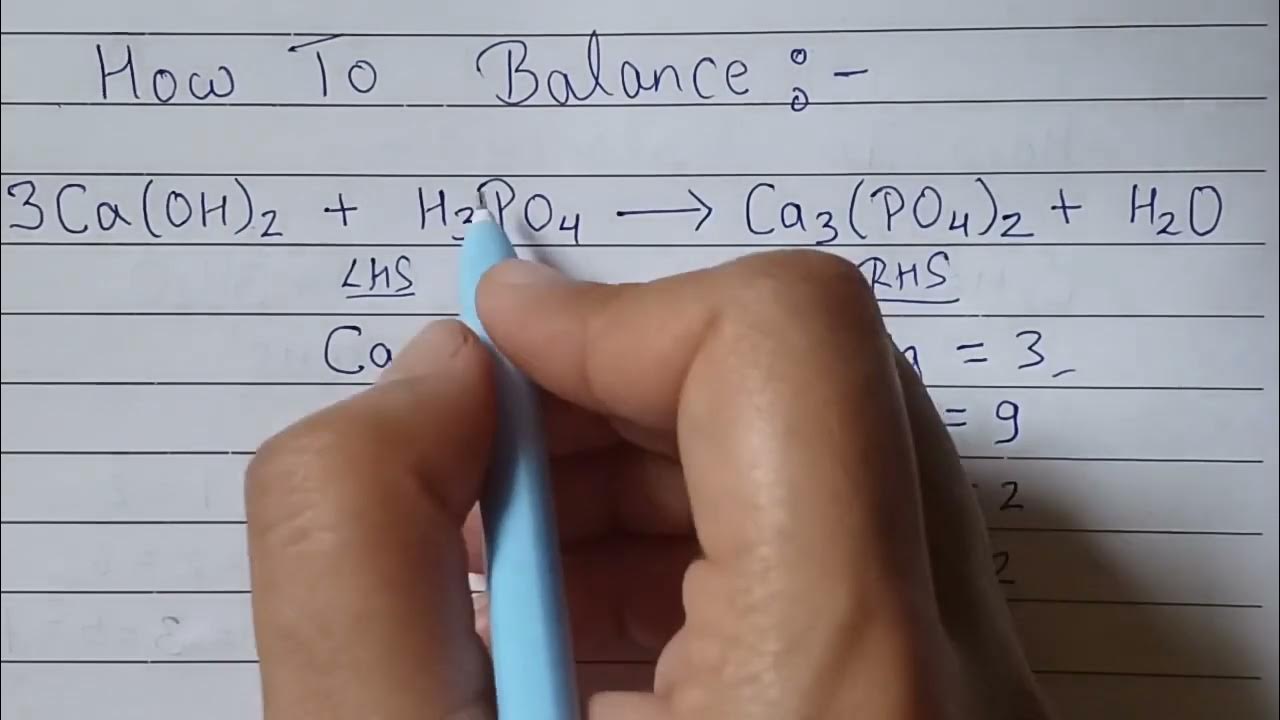 How To Balance :-
3Ca(OH)₂ + H₃PO₄ → Ca₃(PO₄)₂ + H₂O
LHS RHS
Ca = 3
= 9
2
2